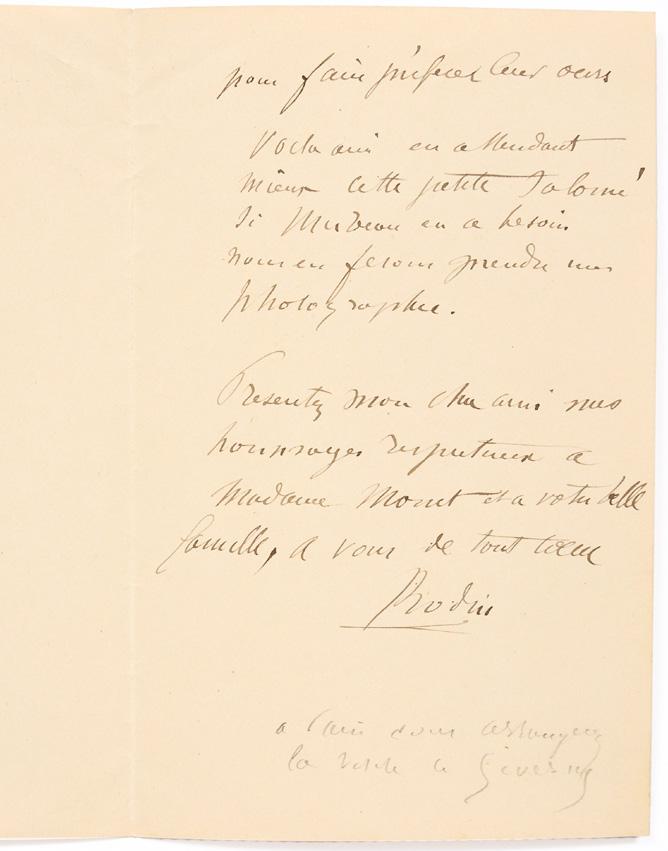 pour faire prisonnier leur ours
Voilà ami en attendant
mieux cette petite Salomé
Si Mirbeau en a besoin
nous en ferons prendre une
photographie.
Presentez mon cher ami mes
hommages respectueux a
Madame Monet et a votre belle
famille, a vous de tout cœur
Rodin
a Paris nous arrangerons
la visite a Giverny